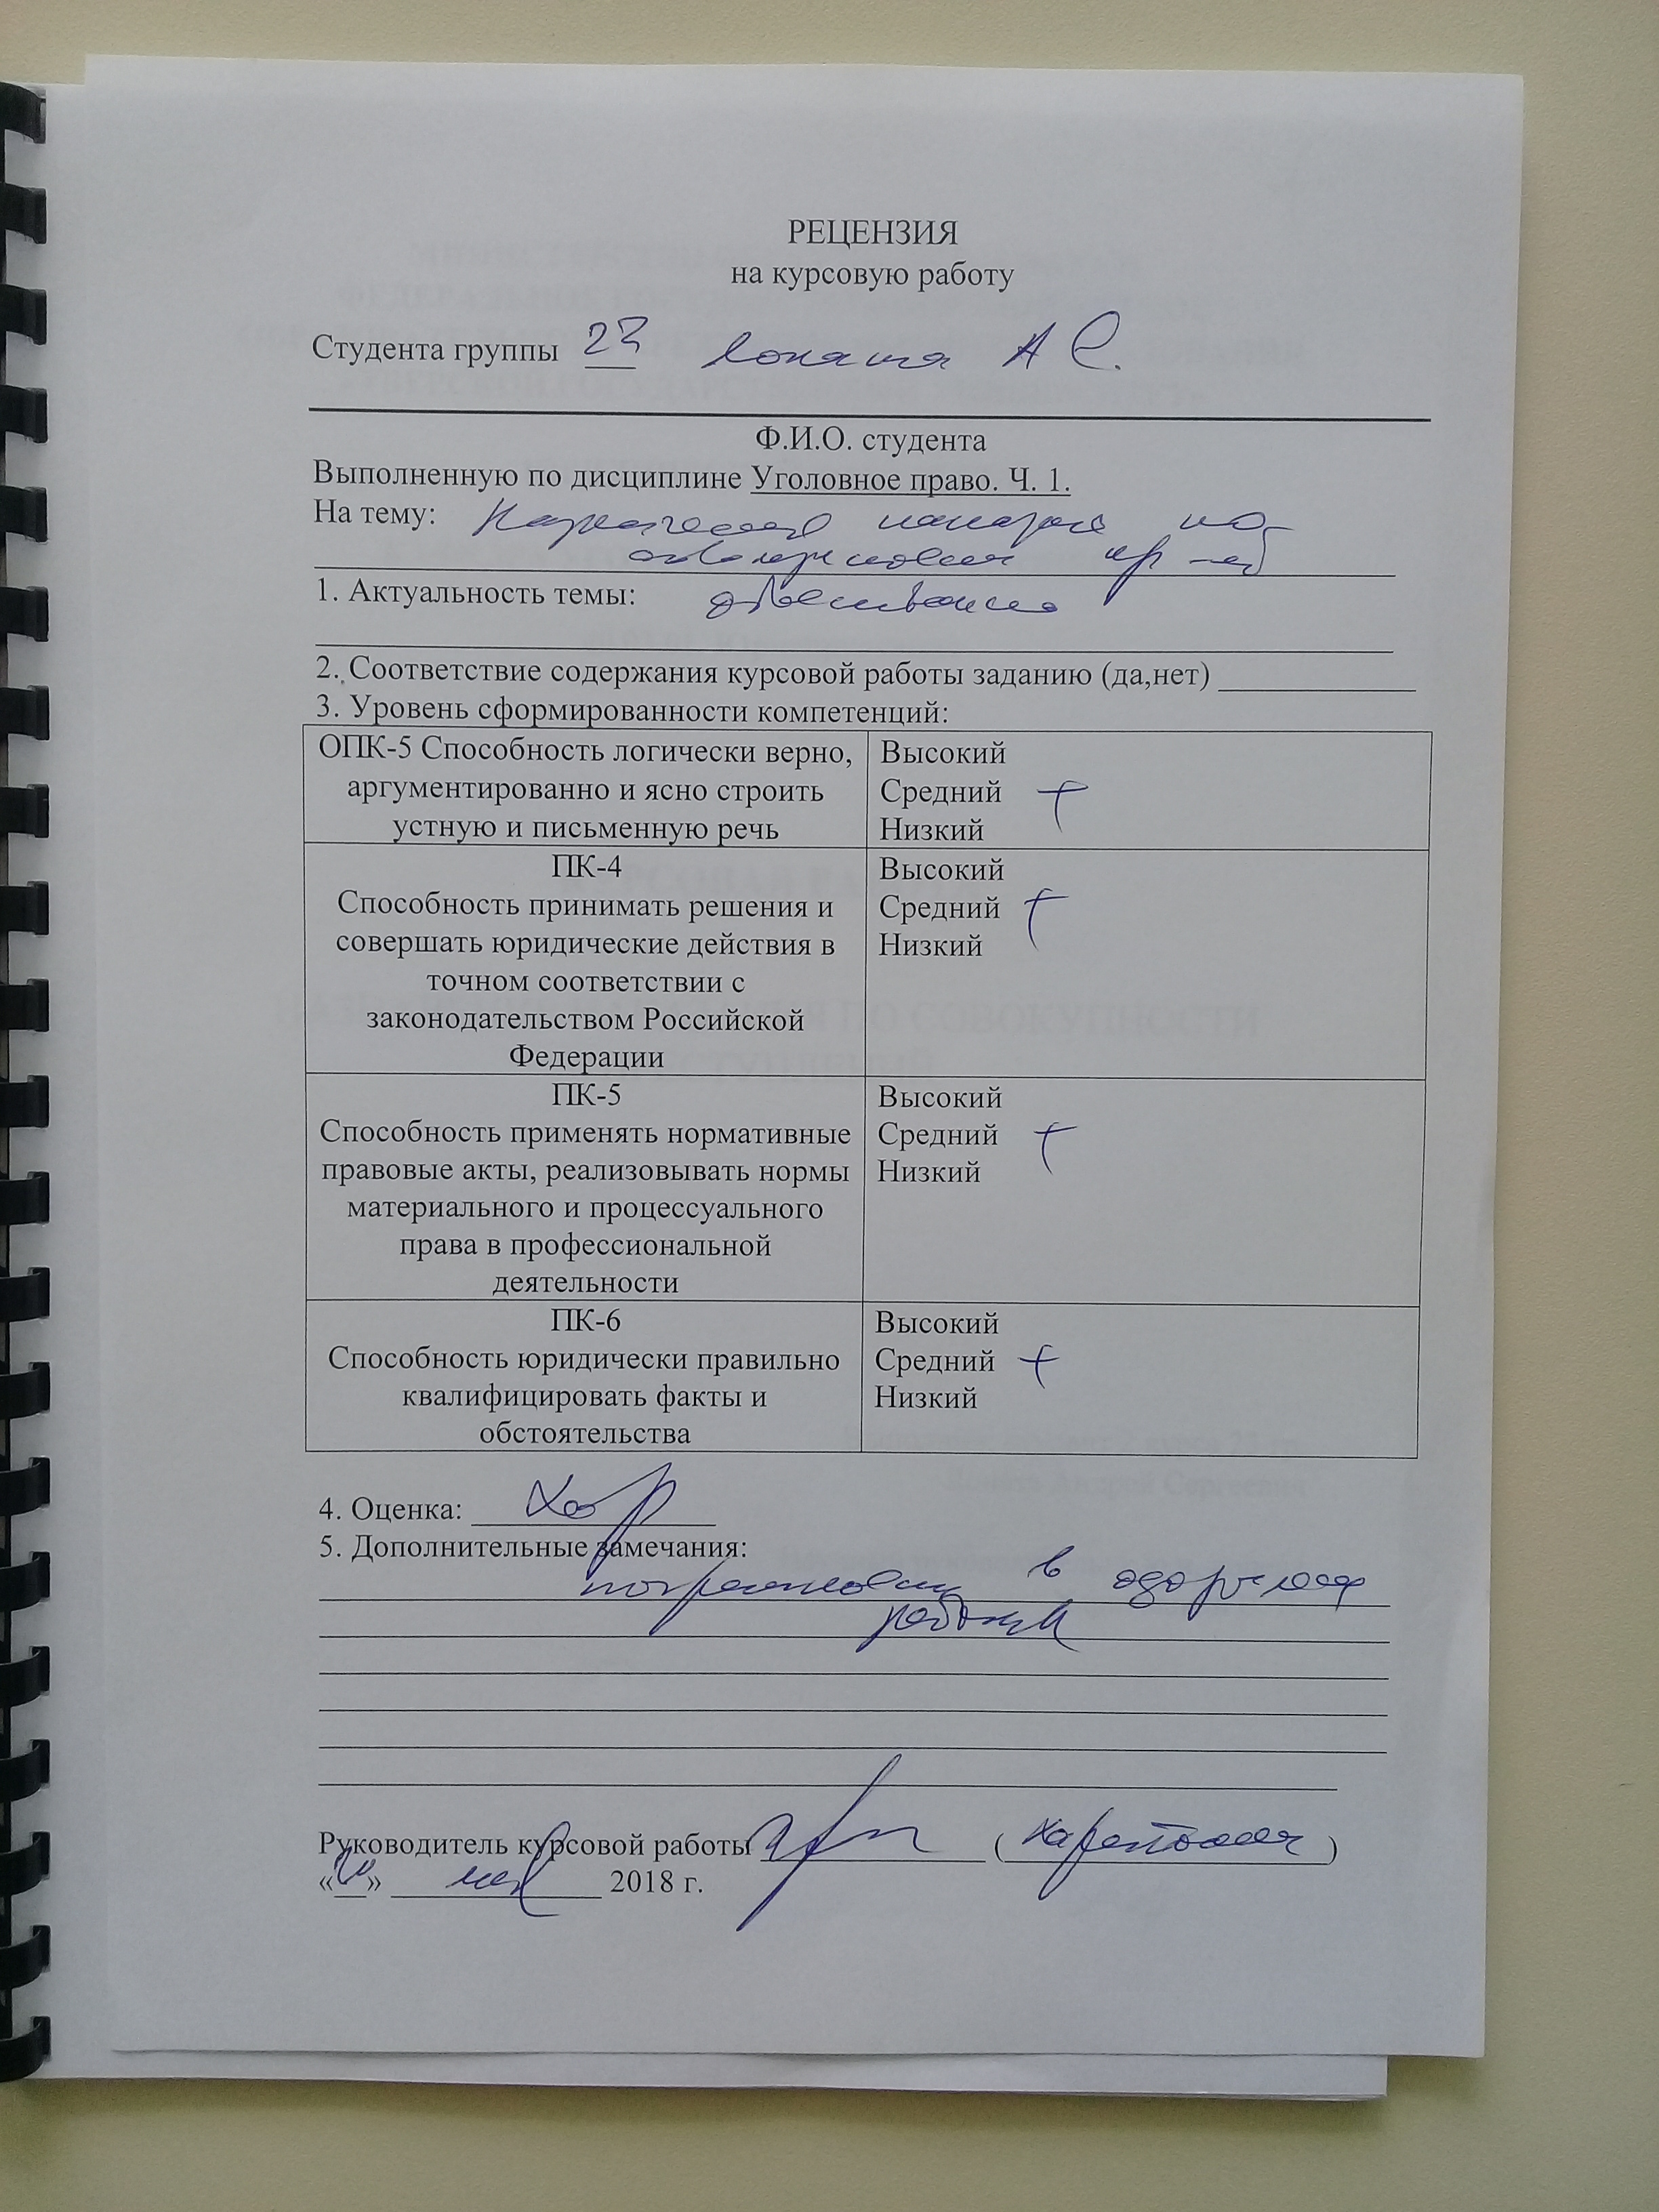 РЕЦЕНЗИЯ
на курсовую работу
Студента группы 22 А С.
Ф.И.О. студента
Выполненную по дисциплине Уголовное право. Ч. 1.
На тему: Назначение наказания по
совокупности пр-ий
1. Актуальность темы:
2. Соответствие содержания курсовой работы заданию (да,нет)
3. Уровень сформированности компетенций:
ОПК-5 Способность логически верно,
аргументированно и ясно строить
устную и письменную речь
Высокий
Средний +
Низкий
ПК-4
Способность принимать решения и
совершать юридические действия в
точном соответствии с
законодательством Российской
Федерации
Высокий
Средний +
Низкий
ПК-5
Способность применять нормативные
правовые акты, реализовывать нормы
материального и процессуального
права в профессиональной
деятельности
Высокий
Средний +
Низкий
ПК-6
Способность юридически правильно
квалифицировать факты и
обстоятельства
Высокий
Средний +
Низкий
4. Оценка: хор
5. Дополнительные замечания:
в
работы
Руководитель курсовой работы ( )
« » мая 2018 г.